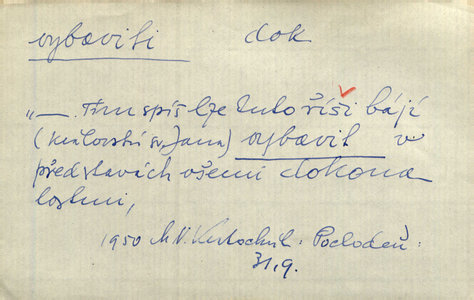 vybaviti dok
"—. Tím spíš lze tuto říši bájí
(království sv. Jana) vybavit v
představách všemi dokona
lostmi,
1950 M.V. Kratochvíl: Pochodeň:
31,9.